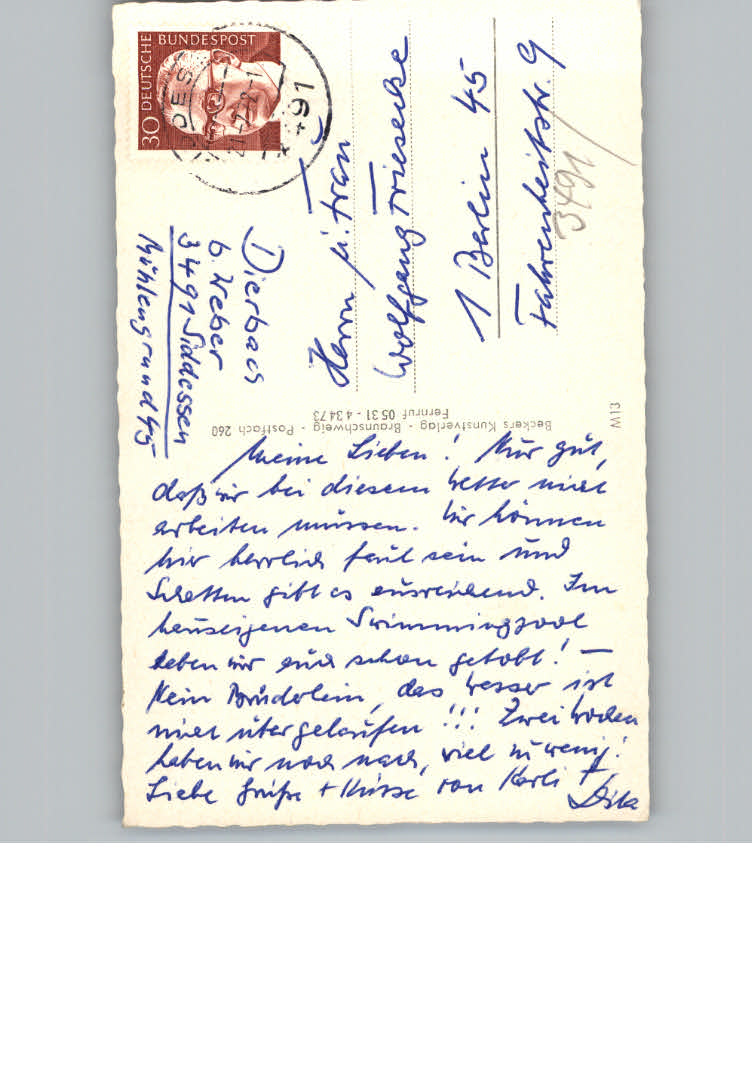 DEUTSCHE BUNDESPOST
30
491
Dierbach
b. Weber
3491 Siddessen
Mühlengrund 45
Herrn u. Frau
Wolfgang Triesecke
1 Berlin 45
Fahrenheitstr. 9
3491
Beckers Kunstverlag - Braunschweig - Postfach 260
Fernruf 05 31 - 4 34 73
M13
Meine Lieben! Nur gut,
daß wir bei diesem Wetter nicht
arbeiten müssen. Wir können
hier herrlich faul sein und
Schatten gibt es ausreichend. Im
hauseigenen Swimmingpool
haben wir auch schon getobt! –
Kein Brüderlein, das Wasser ist
nicht übergelaufen!!! Zwei Wochen
haben wir noch nach, viel zu wenig!
Liebe Grüße + Küsse von Karli +